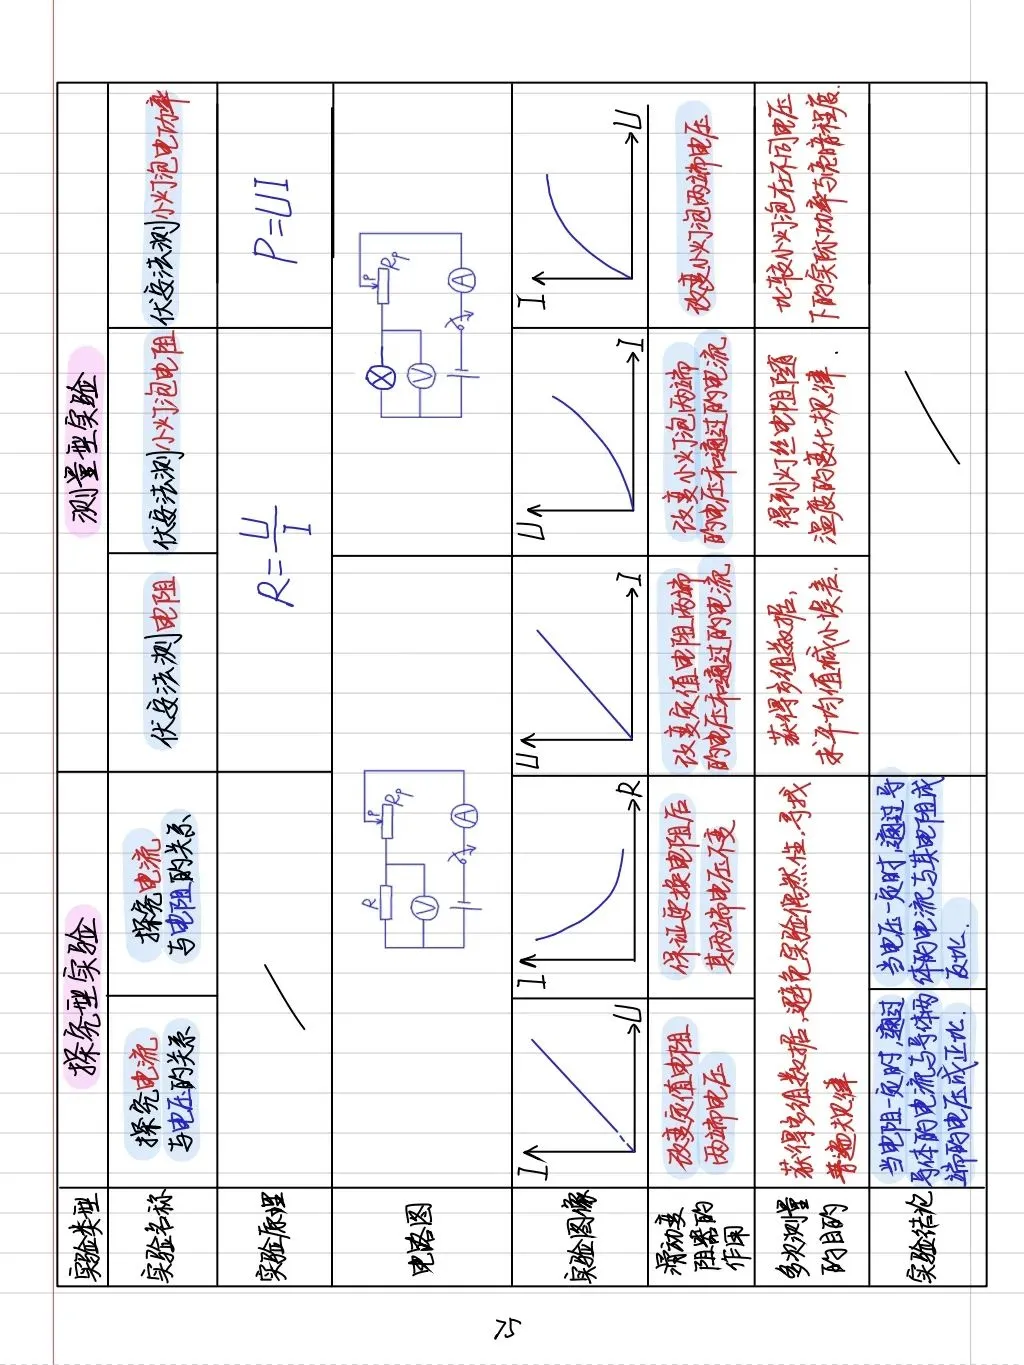 实验类型
探究型实验
测量型实验
实验名称
探究电流
与电压的关系
探究电流
与电阻的关系
伏安法测电阻
伏安法测小灯泡电阻
伏安法测小灯泡电功率
实验原理
R=U/I
P=UI
电路图
R
P
Rp
V
A
P
Rp
V
A
实验图像
I
U
I
R
U
I
U
I
I
U
滑动变
阻器的
作用
改变定值电阻
两端电压
保证更换电阻后
其两端电压不变
改变定值电阻两端
的电压和通过的电流
改变小灯泡两端
的电压和通过的电流
改变小灯泡两端电压
多次测量
的目的
获得多组数据,避免实验偶然性,寻找
普遍规律
获得多组数据,
求平均值减小误差.
得到灯丝电阻随
温度的变化规律.
比较小灯泡在不同电压
下的实际功率与亮暗程度.
实验结论
当电阻一定时,通过
导体的电流与导体两
端的电压成正比.
当电压一定时,通过导
体的电流与其电阻成
反比.
75